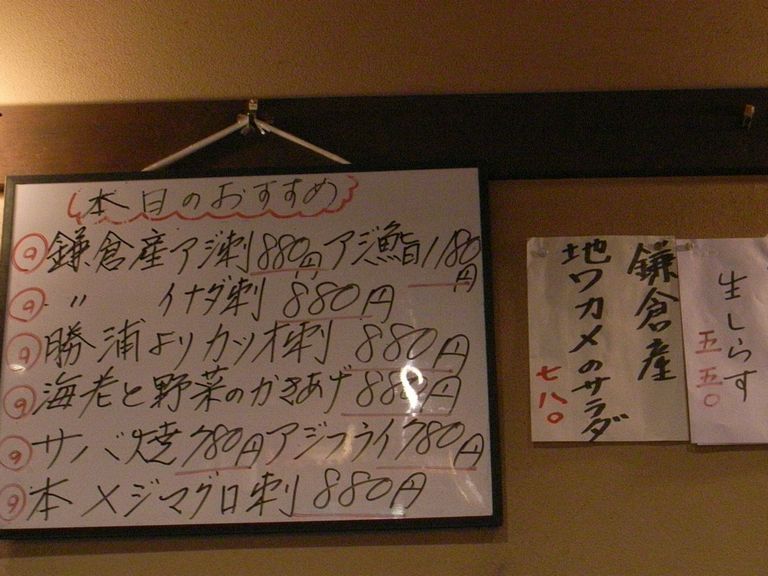 本日のおすすめ
鎌倉産アジ刺880円アジ鮨1180円
〃 イナダ刺 880円
勝浦よりカツオ刺 880円
海老と野菜のかきあげ 880円
サバ焼780円アジフライ780円
本メジマグロ刺 880円
鎌倉産
地ワカメのサラダ
七八〇
生しらす
五五〇